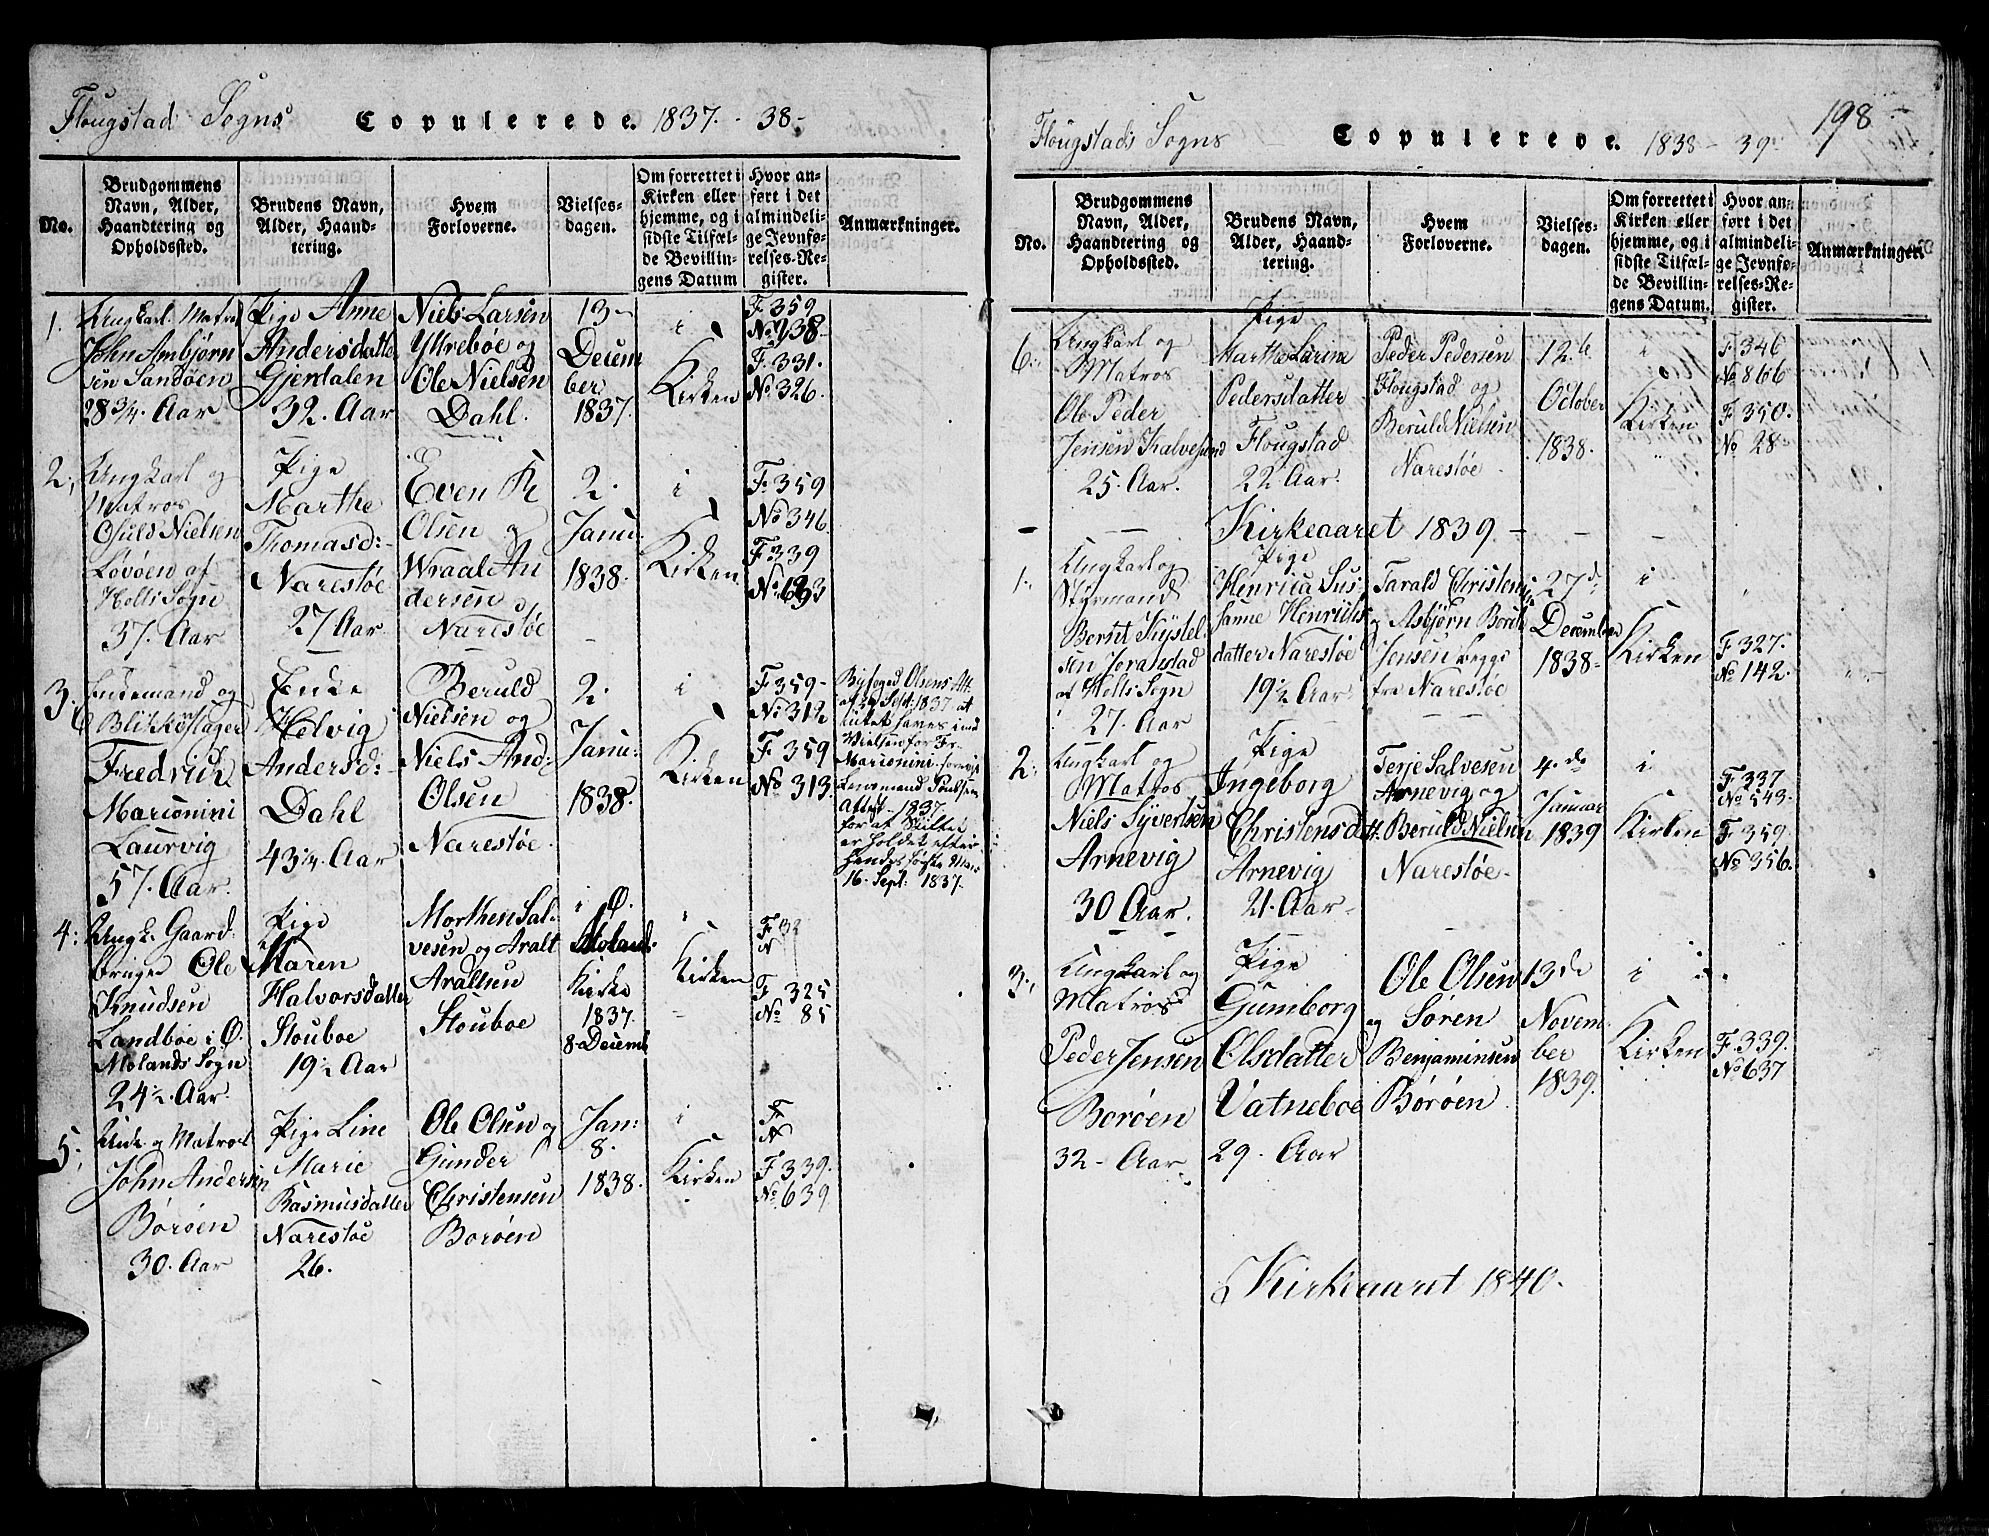 Flougstad Sogns Copulerede. 1837 - 38 -
No.
Brudgommens
Navn, Alder,
Haandtering og
Opholdssted.
Brudens Navn,
Alder, Haand-
tering.
Hvem
Forloverne.
Vielses-
dagen.
Om forrettet i
Kirken eller
hjemme, og i
sidste Tilfæl-
de Bevillin-
gens Datum
Hvor an-
ført i det
almindeli-
ge Jevnfø-
relses-Re-
gister.
Anmærkninger.
1.
Ungkarl. Matro
John Ambjørn
sen Sandøen
28 3/4. Aar
Pige Anne
Andersdatter
Gjerdalen
32. Aar
Niels Larsen
Yttrebøe og
Ole Nielsen
Dahl.
13
Decem
ber
1837.
i
Kirken
F. 359
F. 331.
No. 326.
2,
Ungkarl og
Matros
Osuld Nielsen
Løvøen af
Holts Sogn
37. Aar
Pige
Marthe
Thomasd:
Narestøe
27 Aar
Even R
Olsen og
Wraal An
dersen
Narestøe
2.
Janu:
1838.
i
Kirken
F. 359
No 346.
F. 339
3.
Enkemand og
Blikkeslager
Fredrich
Marionini
Laurvig
57. Aar.
Enke
Helvig
Andersd:
Dahl
43 1/4. Aar
Beruld
Nielsen og
Niels And:
Olsen
Narestøe.
2.
Janu:
1838.
i
Kirken
F. 359-
No 312
F. 359
No 313.
Byfoged Olsens Att.
af Sept: 1837 at
intet haves imod
Vielsen for Fr.
Marionini
Lensmand
Attest 1837
for at Skifte
er holdet efter
hendes
16. Sept: 1837.
4.
Ungk. Gaard-
bruger Ole
Knudsen
Landbøe i Ø.
Molands Sogn
24 1/2. Aar.
Pige
Maren
Halvorsdatter
Stouboe
19 1/2 Aar
Morthen Sal-
vesen og Aralt
Araltsen
Stouboe
i Ø.
Molands
Kirke
1837.
8. Decemb
i
Kirken
F 32
N
F 325
No 85
5.
Unk. og Matros
John Andersen
Børøen
30. Aar
Pige Line
Marie
Rasmusdatter
Narestøe
26.
Ole Olsen og
Gunder
Christensen
Borøen
Jan:
8.
1838.
i
Kirken
F
N
F 339.
No. 639.
198
Flougstads Sogns Copulerede. 1838 - 39.
No.
Brudgommens
Navn, Alder,
Haandtering og
Opholdssted.
Brudens Navn,
Alder, Haand-
tering.
Hvem
Forloverne.
Vielses-
dagen.
Om forrettet i
Kirken eller
hjemme, og i
sidste Tilfæl-
de Bevillin-
gens Datum.
Hvor an-
ført i det
almindeli-
ge Jevnfø-
relses-Re-
gister.
Anmærkninger.
6.
Ungkarl og
Matros
Ole Peder
Jensen Kalvesund
25. Aar.
Pige
Marthe Larine
Pedersdatter
Flougstad
22 Aar.
Peder Pedersen
Flougstad og
Beruld Nielsen
Narestøe
12te
October
1838.
i
Kirken
F 346
No 866
F. 350.
No 28
Kirkeaaret 1839 -
1.
Ungkarl og
Styrmand
Bernt Kystel
sen Joralstad
af Holts Sogn
27. Aar
Pige
Henrica Sus-
sanne Henrichs
datter Narestøe
19 1/2 Aar
Tarald Christens
og Asbjørn Bernt
Jensen begge
fra Narestøe
27de
December
1838
i
Kirken
F 327.
No 142.
2.
Ungkarl og
Matros
Niels Syvertsen
Arnevig
30 Aar.
Pige
Ingeborg
Christensdatt.
Arnevig
21. Aar
Terje Salvesen
Arnevig og
Beruld Nielsen
Narestøe
4.de
Januar
1839
i
Kirken
F 337.
No 543.
F. 359.
No 356.
3.
Ungkarl og
Matros
Peder Jensen
Borøen
32 - Aar
Pige
Gumborg
Olsdatter
Vatneboe
29. Aar
Ole Olsen
og Søren
Benjaminsen
Børøen
13de
Novem-
ber
1839.
i
Kirken
F. 339.
No 637
Kirkeaaret 1840.